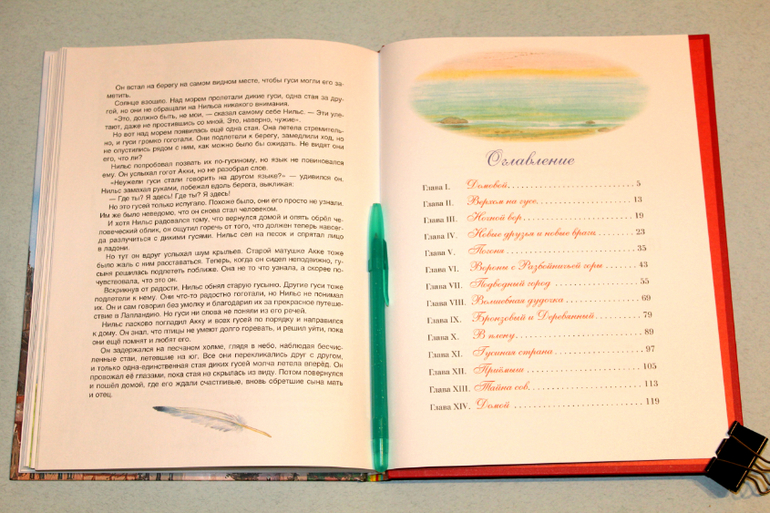 Он встал на берегу на самом видном месте, чтобы гуси могли его за-
метить.
Солнце взошло. Над морем пролетали дикие гуси, одна стая за дру-
гой, но они не обращали на Нильса никакого внимания.
«Это, должно быть, не мои, — сказал самому себе Нильс. — Эти уле-
тают, даже не простившись со мной. Это, наверно, чужие».
Но вот над морем появилась ещё одна стая. Она летела стремитель-
но, и гуси громко гоготали. Они подлетели к берегу, замедлили ход, но
не опустились рядом с ним, как можно было бы ожидать. Не видят они
его, что ли?
Нильс попробовал позвать их по-гусиному, но язык не повиновался
ему. Он услыхал гогот Акки, но не разобрал слов.
«Неужели гуси стали говорить на другом языке?» — удивился он.
Нильс замахал руками, побежал вдоль берега, выкликая:
— Где ты? Я здесь! Где ты? Я здесь!
Но это гусей только испугало. Похоже было, они его просто не узнали.
Им же было неведомо, что он снова стал человеком.
И хотя Нильс радовался тому, что вернулся домой и опять обрёл че-
ловеческий облик, он ощутил горечь от того, что должен теперь навсег-
да разлучиться с дикими гусями. Нильс сел на песок и спрятал лицо
в ладони.
Но тут он вдруг услыхал шум крыльев. Старой матушке Акке тоже
было жаль с ним расставаться. Теперь, когда он сидел неподвижно, гу-
сыня решилась подлететь поближе. Она не то что узнала, а скорее по-
чувствовала, что это он.
Вскрикнув от радости, Нильс обнял старую гусыню. Другие гуси тоже
подлетели к нему. Они что-то радостно гоготали, но Нильс не понимал
их. Он и сам говорил без умолку и благодарил их за прекрасное путеше-
ствие в Лапландию. Но гуси ни слова не поняли из его речей.
Нильс ласково погладил Акку и всех гусей по порядку и направился
к дому. Он знал, что птицы не умеют долго горевать, и решил уйти, пока
они ещё помнят и любят его.
Он задержался на песчаном холме, глядя в небо, наблюдая бесчис-
ленные стаи, летевшие на юг. Все они перекликались друг с другом,
и только одна-единственная стая диких гусей молча летела вперёд. Он
провожал её глазами, пока стая не скрылась из виду. Потом повернулся
и пошёл домой, где его ждали счастливые, вновь обретшие сына мать
и отец.
Оглавление
Глава I. Домовой. 5
Глава II. Верхом на гусе. 13
Глава III. Ночной вор. 19
Глава IV. Новые друзья и новые враги. 23
Глава V. Погоня. 35
Глава VI. Вороны с Разбойничьей горы. 43
Глава VII. Подводный город. 55
Глава VIII. Волшебная дудочка. 69
Глава IX. Бронзовый и Деревянный. 79
Глава X. В плену. 89
Глава XI. Гусиная страна. 97
Глава XII. Приёмыш. 105
Глава XIII. Тайна сов. 113
Глава XIV. Домой. 119